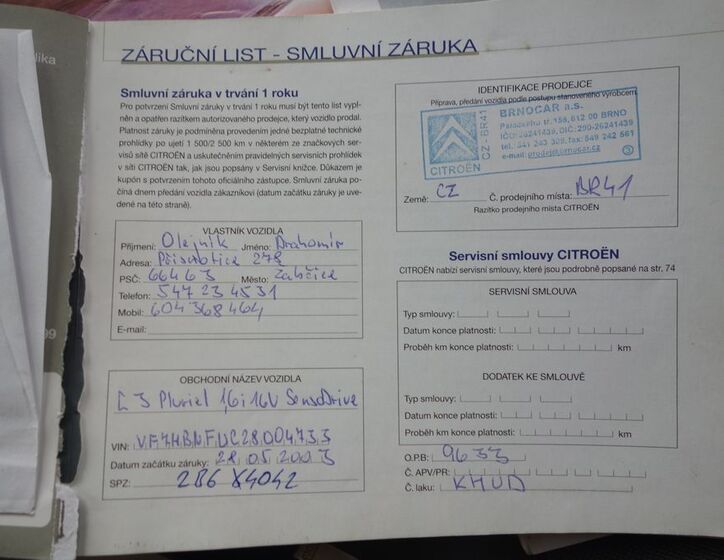 lika
ZÁRUČNÍ LIST - SMLUVNÍ ZÁRUKA
Smluvní záruka v trvání 1 roku
Pro potvrzení Smluvní záruky v trvání 1 roku musí být tento list vypl-
něn a opatřen razítkem autorizovaného prodejce, který vozidlo prodal.
Platnost záruky je podmíněna provedením jedné bezplatné technické
prohlídky po ujetí 1 500/2 500 km v některém ze značkových ser-
visů sítě CITROËN a uskutečněním pravidelných servisních prohlídek
v síti CITROËN tak, jak jsou popsány v Servisní knížce. Důkazem je
kupón s potvrzením tohoto oficiálního zástupce. Smluvní záruka po-
číná dnem předání vozidla zákazníkovi (datum začátku záruky je uve-
dené na této straně).
VLASTNÍK VOZIDLA
Příjmení: Olejník Jméno: Drahomír
Adresa: Přísnotice 278
PSČ: 66463 Město: Žabčice
Telefon: 547234531
Mobil: 604368464
E-mail:
OBCHODNÍ NÁZEV VOZIDLA
C3 Pluriel 1,6i 16V SensoDrive
VIN: VF7HBNFUC28004733
Datum začátku záruky: 28.05.2003
SPZ: 2B6 X4042
IDENTIFIKACE PRODEJCE
Příprava, předání vozidla podle postupu stanoveného výrobcem
BRNOCAR a.s.
Palackého tř. 158, 612 00 BRNO
IČO: 26241439, DIČ: 290-26241439
tel.: 541 243 309, fax: 549 242 561
e-mail: prodej@brnocar.cz
CZ - BR41
CITROËN
3
Země: CZ Č. prodejního místa: BR41
Razítko prodejního místa CITROËN
Servisní smlouvy CITROËN
CITROËN nabízí servisní smlouvy, které jsou podrobně popsané na str. 74
SERVISNÍ SMLOUVA
Typ smlouvy:
Datum konce platnosti:
Proběh km konce platnosti: km
DODATEK KE SMLOUVĚ
Typ smlouvy:
Datum konce platnosti:
Proběh km konce platnosti: km
O.P.R.: 9633
Č. APV/PR:
Č. laku: KHUD
99